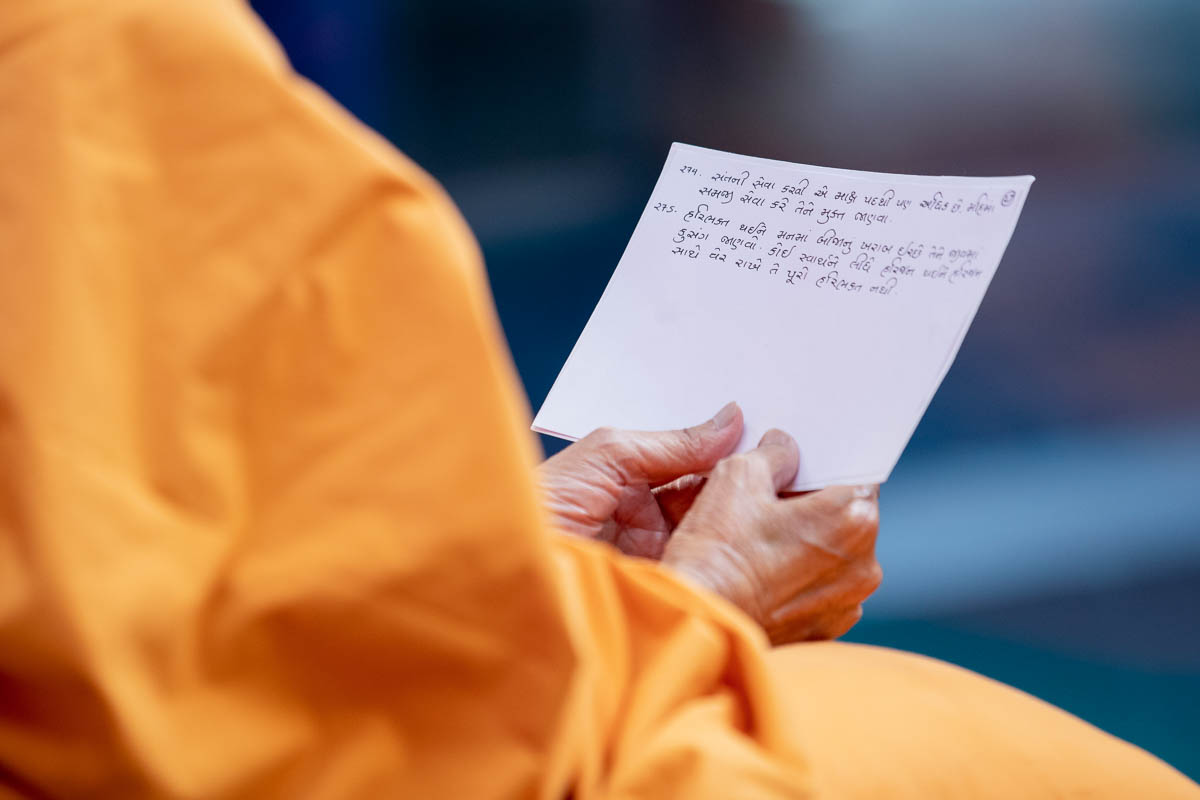 ૨૭૫. સંતની સેવા કરવી એ મોક્ષ પદથી પણ અધિક છે. મહિમા
સમજી સેવા કરે તેને મુક્ત જાણવા.
૨૭૬. હરિભક્ત થઈને મનમાં બીજાનું ખરાબ ઇચ્છે તેને જીવમાં
કુસંગ જાણવો. કોઈ સ્વાર્થને લીધે હરિજન થઈને હરિજન
સાથે વેર રાખે તે પૂરો હરિભક્ત નથી.